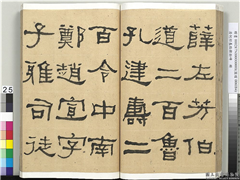 薛左芳伯
道二百魯
孔建壽一
百令中南
鄭趙宣字
子雅司徒
25